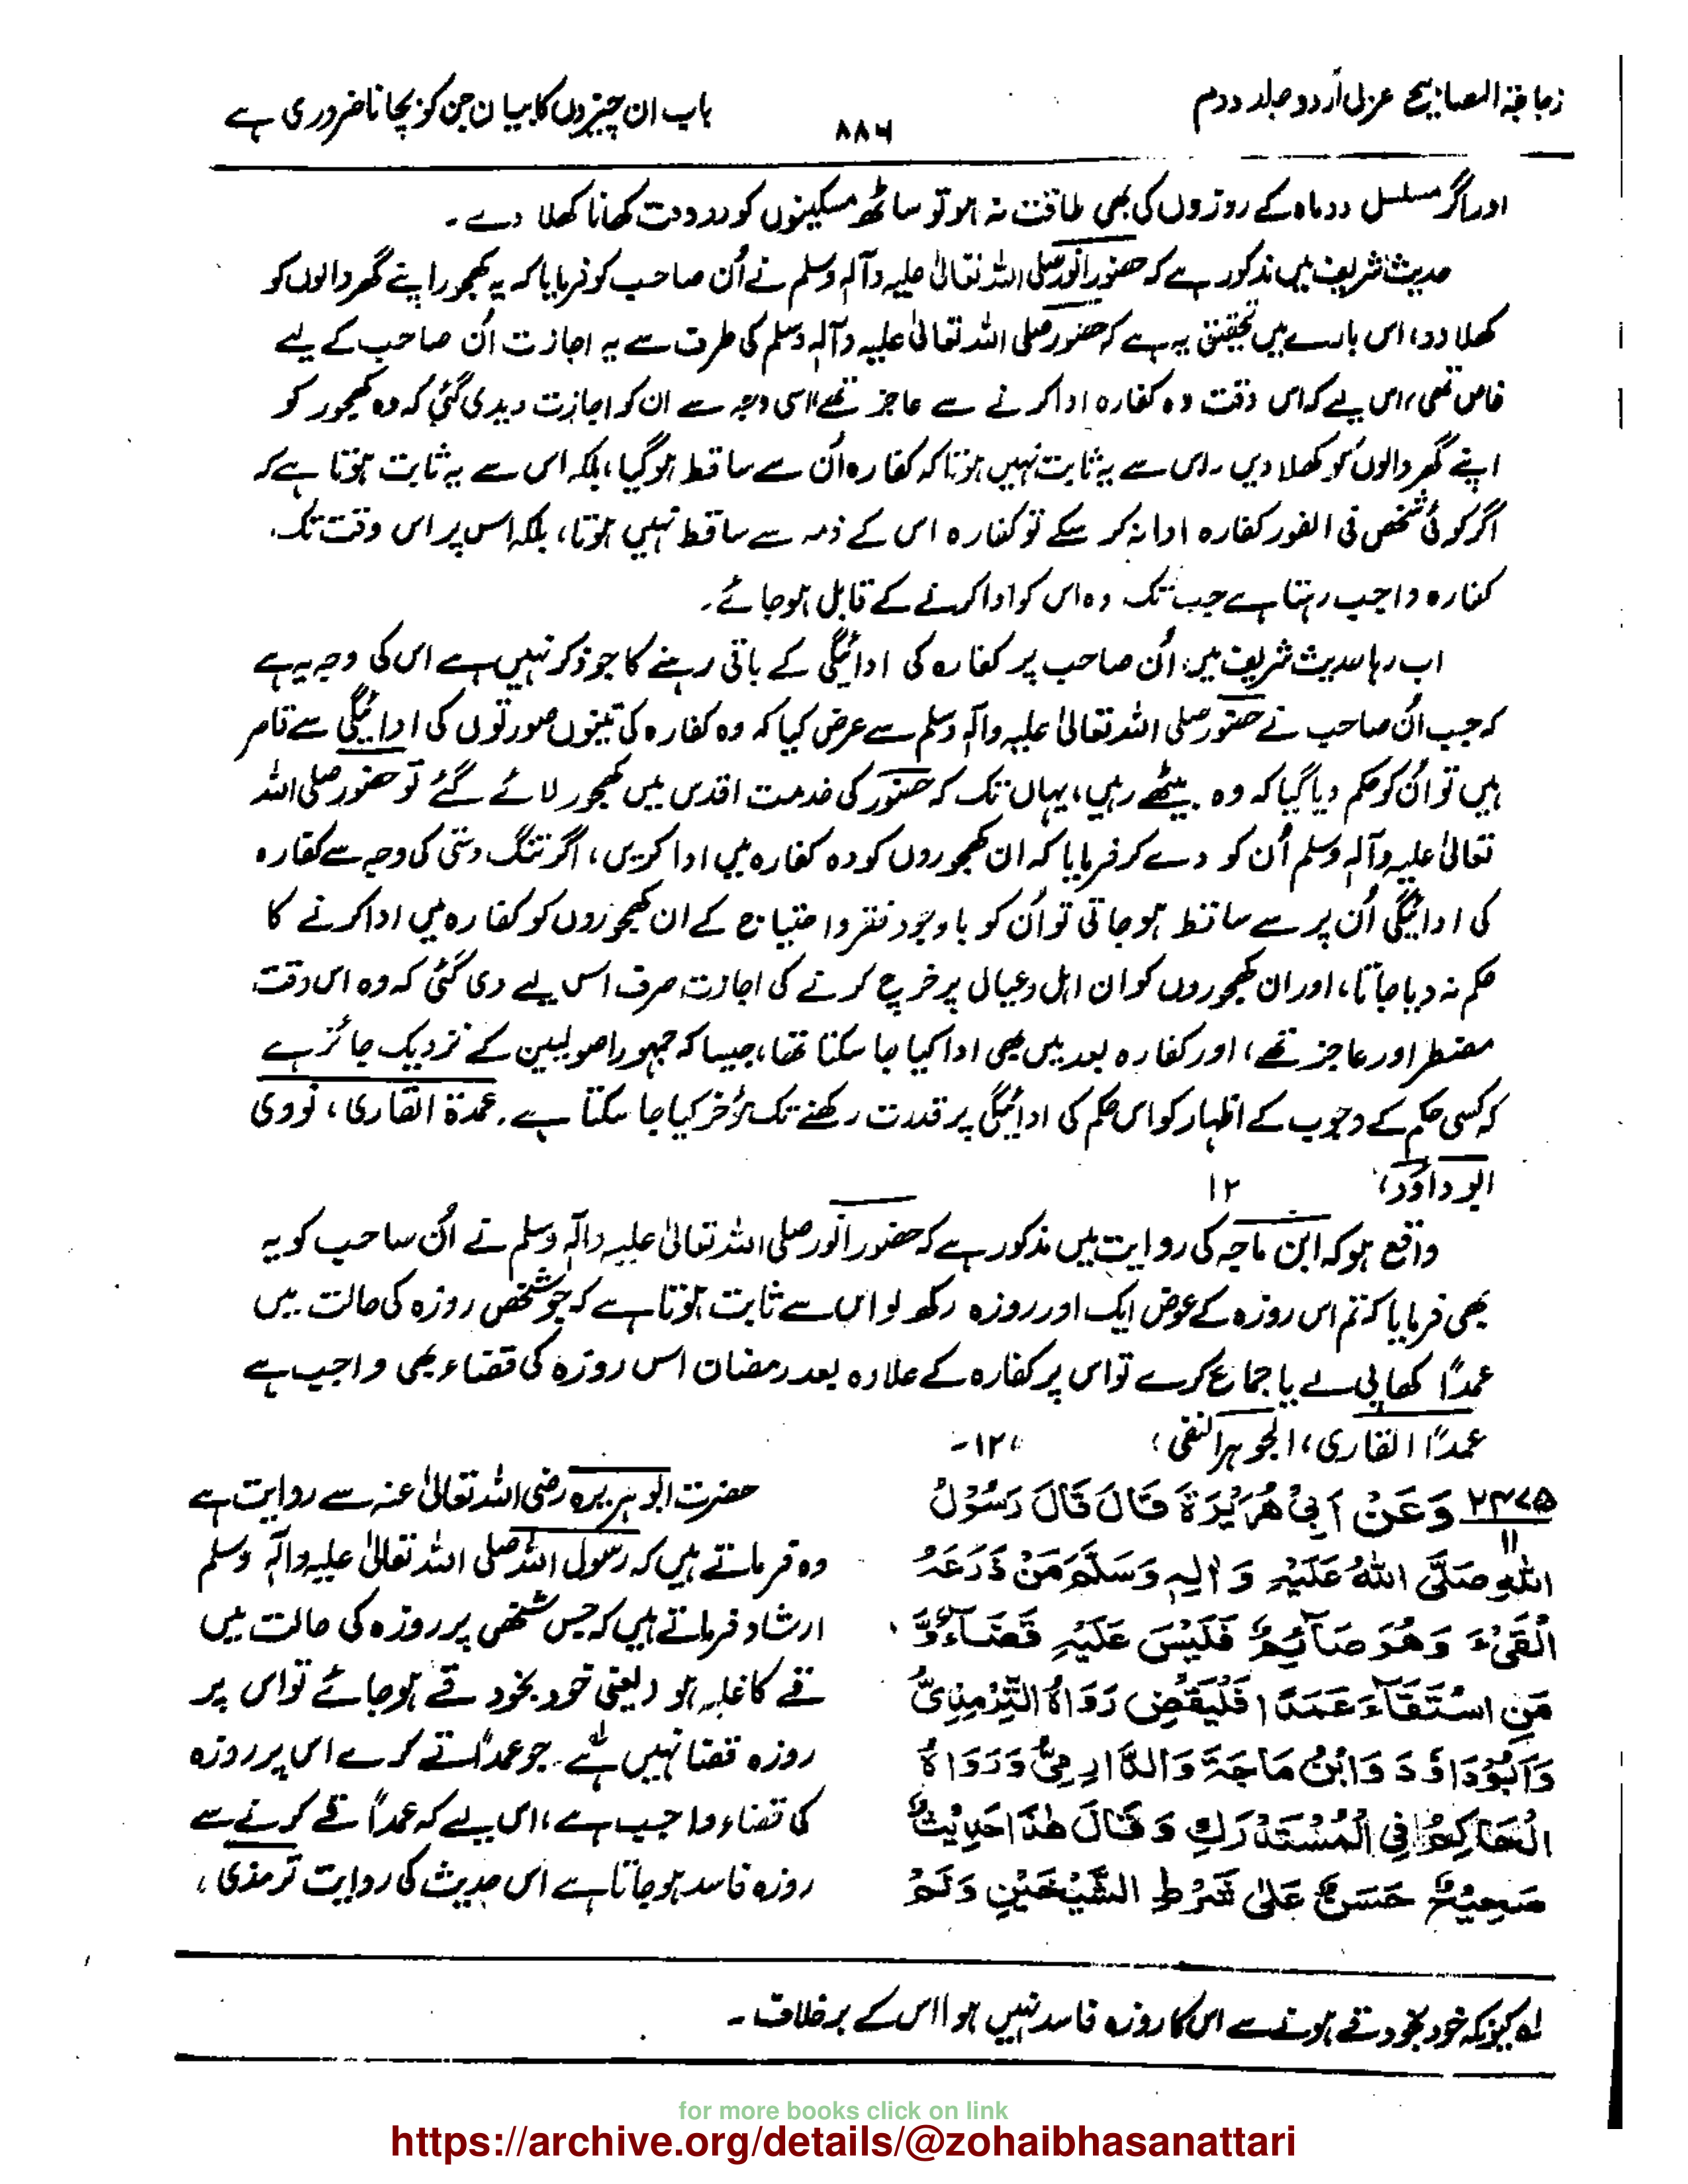 زجاجۃ المصابیح عربی اُردو جلد دوم
۸۸۶
باب ان چیزوں کا بیان جن کو بچانا ضروری ہے
اور اگر مسلسل دو ماہ کے روزوں کی بھی طاقت نہ ہو تو ساٹھ مسکینوں کو دو وقت کھانا کھلا دے۔
حدیث شریف میں مذکور ہے کہ حضور انور صلی اللہ تعالیٰ علیہ وآلہ وسلم نے اُن صاحب کو فرمایا کہ یہ کھجور اپنے گھر والوں کو
کھلا دو، اس بارے میں تحقیق یہ ہے کہ حضور صلی اللہ تعالیٰ علیہ وآلہ وسلم کی طرف سے یہ اجازت اُن صاحب کے لیے
خاص تھی، اس لیے کہ اس وقت وہ کفارہ ادا کرنے سے عاجز تھے، اسی وجہ سے ان کو اجازت دیدی گئی کہ وہ کھجور کو
اپنے گھر والوں کو کھلا دیں۔ اس سے یہ ثابت نہیں ہوتا کہ کفارہ اُن سے ساقط ہوگیا، بلکہ اس سے یہ ثابت ہوتا ہے کہ
اگر کوئی شخص فی الفور کفارہ ادا نہ کر سکے تو کفارہ اس کے ذمہ سے ساقط نہیں ہوتا، بلکہ اس پر اس وقت تک
کفارہ واجب رہتا ہے جب تک وہ اس کو ادا کرنے کے قابل ہو جائے۔
اب رہا حدیث شریف میں اُن صاحب پر کفارہ کی ادائیگی کے باقی رہنے کا جو ذکر نہیں ہے اس کی وجہ یہ ہے
کہ جب اُن صاحب نے حضور صلی اللہ تعالیٰ علیہ وآلہ وسلم سے عرض کیا کہ وہ کفارہ کی تینوں صورتوں کی ادائیگی سے قاصر
ہیں تو اُن کو حکم دیا گیا کہ وہ بیٹھے رہیں، یہاں تک کہ حضور کی خدمت اقدس میں کھجور لائے گئے تو حضور صلی اللہ
تعالیٰ علیہ وآلہ وسلم اُن کو دے کر فرمایا کہ ان کھجوروں کو وہ کفارہ میں ادا کریں، اگر تنگ دستی کی وجہ سے کفارہ
کی ادائیگی اُن پر سے ساقط ہو جاتی تو اُن کو باوجود فقر و احتیاج کے ان کھجوروں کو کفارہ میں ادا کرنے کا
حکم نہ دیا جاتا، اور ان کھجوروں کو ان اہل و عیال پر خرچ کرنے کی اجازت صرف اس لیے دی گئی کہ وہ اس وقت
مضطر اور عاجز تھے، اور کفارہ بعد میں بھی ادا کیا جا سکتا تھا، جیسا کہ جمہور اصولیین کے نزدیک جائز ہے
کہ کسی حکم کے وجوب کے اظہار کو اس حکم کی ادائیگی پر قدرت رکھنے تک مؤخر کیا جا سکتا ہے۔ عمدۃ القاری، نووی
ابو داؤد، ۱۲
واقع ہو کہ ابن ماجہ کی روایت میں مذکور ہے کہ حضور انور صلی اللہ تعالیٰ علیہ وآلہ وسلم نے اُن صاحب کو یہ
بھی فرمایا کہ تم اس روزہ کے عوض ایک اور روزہ رکھ لو اس سے ثابت ہوتا ہے کہ جو شخص روزہ کی حالت میں
عمداً کھا پی لے یا جماع کرے تو اس پر کفارہ کے علاوہ بعد رمضان اس روزہ کی قضاء بھی واجب ہے
عمدۃ القاری، الجوہر النقی، ۱۲۔
۲۴۷۵
۱۱
وَعَنْ اَبِیْ هُرَيْرَةَ قَالَ قَالَ رَسُوْلُ
اللهِ صَلَّى اللهُ عَلَيْهِ وَاٰلِهٖ وَسَلَّمَ مَنْ ذَرَعَهُ
الْقَيْءُ وَهُوَ صَآئِمٌ فَلَيْسَ عَلَيْهِ قَضَآءٌ وَّ
مَنِ اسْتَقَآءَ عَمَدًا فَلْيَقْضِ رَوَاهُ التِّرْمِذِیُّ
وَاَبُوْدَاوٗدَ وَابْنُ مَاجَةَ وَالدَّارِمِیُّ وَرَوَاهُ
الْحَاكِمُ فِی الْمُسْتَدْرَكِ وَقَالَ هٰذَا حَدِيْثٌ
صَحِيْحٌ حَسَنٌ عَلٰى شَرْطِ الشَّيْخَيْنِ وَلَمْ
حضرت ابو ہریرہ رضی اللہ تعالیٰ عنہ سے روایت ہے
وہ فرماتے ہیں کہ رسول اللہ صلی اللہ تعالیٰ علیہ وآلہ وسلم
ارشاد فرماتے ہیں کہ جس شخص پر روزہ کی حالت میں
قے کا غلبہ ہو (یعنی خود بخود قے ہو جائے تو اس پر
روزہ قضا نہیں ہے۔ جو عمداً قے کرے اس پر روزہ
کی قضاء واجب ہے، اس لیے کہ عمداً قے کرنے سے
روزہ فاسد ہو جاتا ہے اس حدیث کی روایت ترمذی،
لہ کیونکہ خود بخود قے ہونے سے اس کا روزہ فاسد نہیں ہوا اس کے برخلاف۔
for more books click on link
https://archive.org/details/@zohaibhasanattari